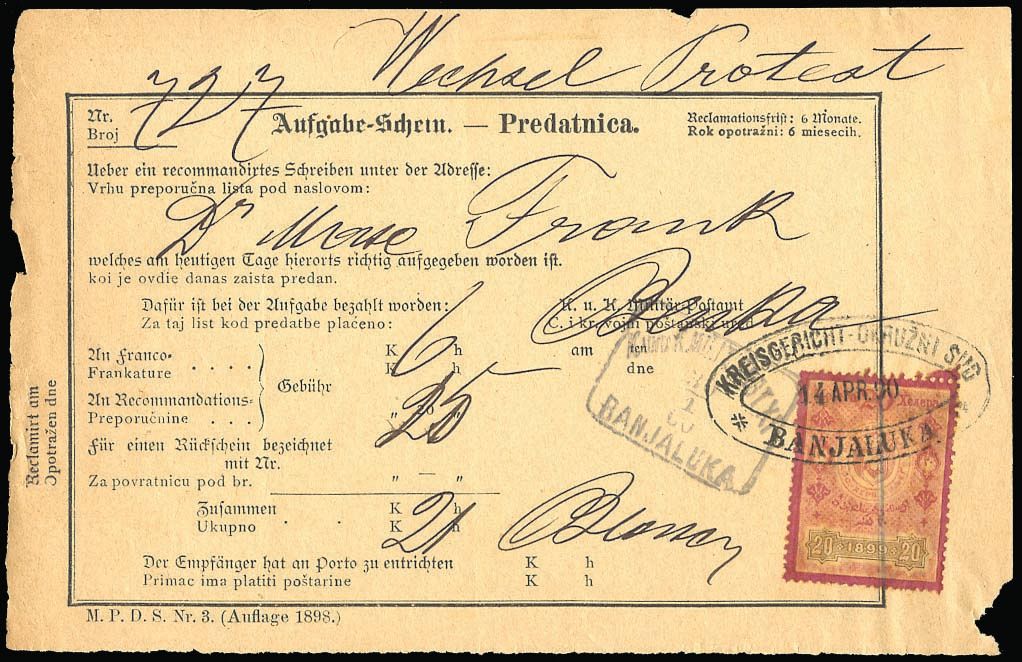 Wechsel Protest
Nr. 727
Broj
Aufgabe-Schein. — Predatnica.
Reclamationsfrist: 6 Monate.
Rok opotražni: 6 miesecih.
Ueber ein recommandirtes Schreiben unter der Adresse:
Vrhu preporučna lista pod naslovom:
Dr Frank
welches am heutigen Tage hierorts richtig aufgegeben worden ist.
koi je ovdie danas zaista predan.
Dafür ist bei der Aufgabe bezahlt worden:
Za taj list kod predatbe plaćeno:
K. u. K. Militär-Postamt
C. i kr. vojni poštanski ured
An Franco-
Frankature
K 6 h
K h
am ten
dne
Gebühr
An Recommandations-
Preporučnine
" 25 "
Für einen Rückschein bezeichnet
mit Nr.
Za povratnicu pod br.
" — "
Zusammen K h
Ukupno K h
Der Empfänger hat an Porto zu entrichten K h
Primac ima platiti poštarine K h
M. P. D. S. Nr. 3. (Auflage 1898.)
Reclamirt am
Opotražen dne
BANJALUKA
KREISGERICHT-OKRUŽNI SUD
14 APR. 90
* BANJALUKA *
20 Хелера
20 1899 20